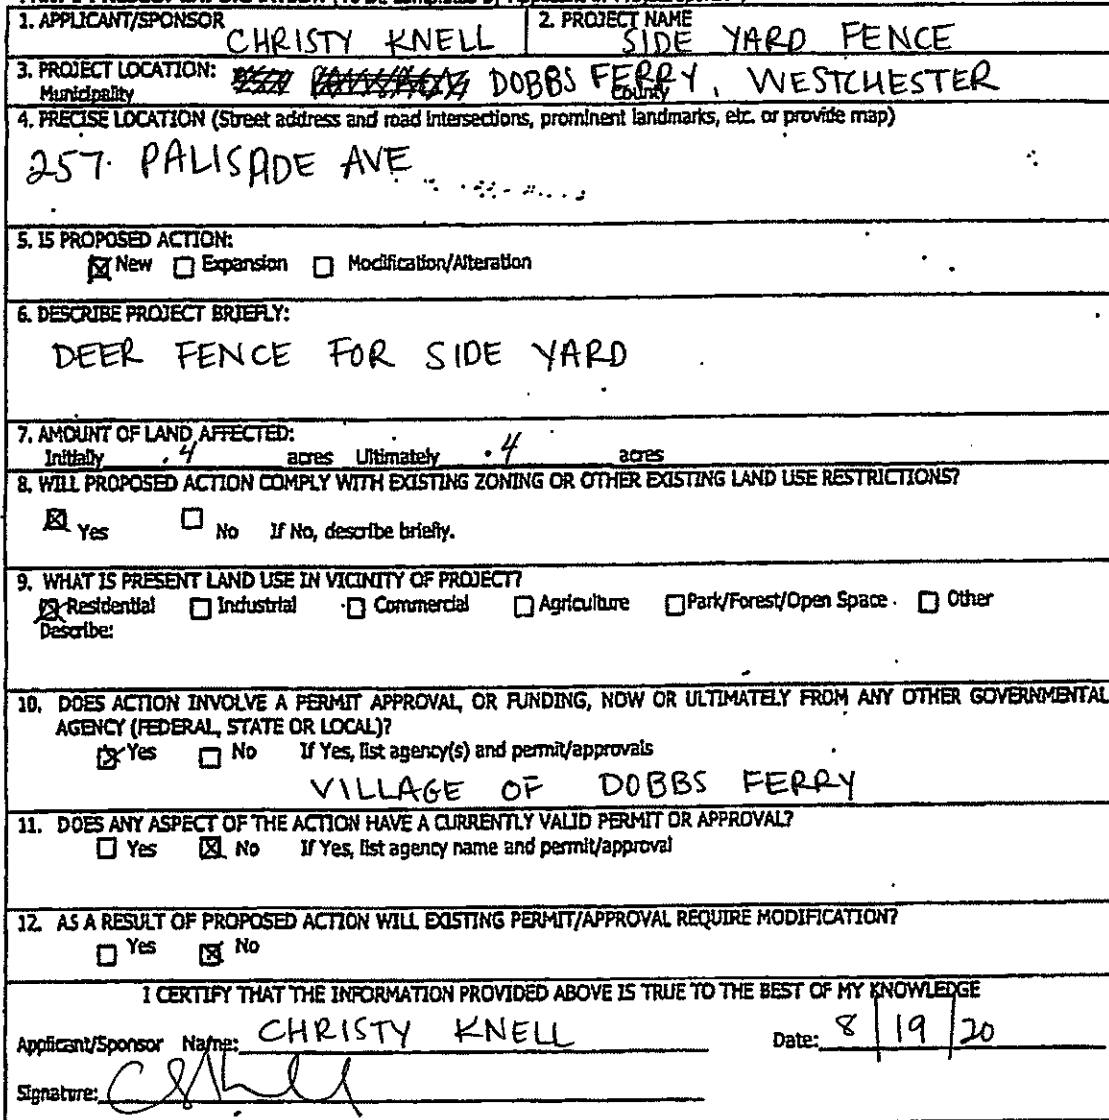 1. APPLICANT/SPONSOR CHRISTY KNELL 2. PROJECT NAME SIDE YARD FENCE
3. PROJECT LOCATION: DOBBS FERRY, WESTCHESTER
Municipality County
4. PRECISE LOCATION (Street address and road intersections, prominent landmarks, etc. or provide map)
257 PALISADE AVE
5. IS PROPOSED ACTION:
☒ New ☐ Expansion ☐ Modification/Alteration
6. DESCRIBE PROJECT BRIEFLY:
DEER FENCE FOR SIDE YARD
7. AMOUNT OF LAND AFFECTED:
Initially .4 acres Ultimately .4 acres
8. WILL PROPOSED ACTION COMPLY WITH EXISTING ZONING OR OTHER EXISTING LAND USE RESTRICTIONS?
☒ Yes ☐ No If No, describe briefly.
9. WHAT IS PRESENT LAND USE IN VICINITY OF PROJECT?
☒ Residential ☐ Industrial ☐ Commercial ☐ Agriculture ☐ Park/Forest/Open Space ☐ Other
Describe:
10. DOES ACTION INVOLVE A PERMIT APPROVAL, OR FUNDING, NOW OR ULTIMATELY FROM ANY OTHER GOVERNMENTAL
AGENCY (FEDERAL, STATE OR LOCAL)?
☒ Yes ☐ No If Yes, list agency(s) and permit/approvals
VILLAGE OF DOBBS FERRY
11. DOES ANY ASPECT OF THE ACTION HAVE A CURRENTLY VALID PERMIT OR APPROVAL?
☐ Yes ☒ No If Yes, list agency name and permit/approval
12. AS A RESULT OF PROPOSED ACTION WILL EXISTING PERMIT/APPROVAL REQUIRE MODIFICATION?
☐ Yes ☒ No
I CERTIFY THAT THE INFORMATION PROVIDED ABOVE IS TRUE TO THE BEST OF MY KNOWLEDGE
Applicant/Sponsor Name: CHRISTY KNELL Date: 8/19/20
Signature: